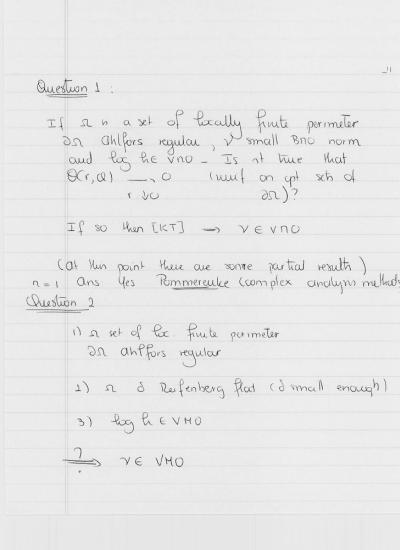 Question 1 :
If Ω is a set of locally finite perimeter
∂Ω Ahlfors regular, ν small BMO norm
and log h ∈ VMO - Is it true that
θ(r,Q) → 0 (unif on cpt sets of
r ↓ 0 ∂Ω)?
If so then [KT] → ν ∈ VMO
(at this point there are some partial results)
n=1 Ans Yes Pommerenke (complex analysis methods
Question 2
1) Ω set of loc. finite perimeter
∂Ω Ahlfors regular
2) Ω δ Reifenberg flat (δ small enough)
3) log h ∈ VMO
? ⟹ ν ∈ VMO